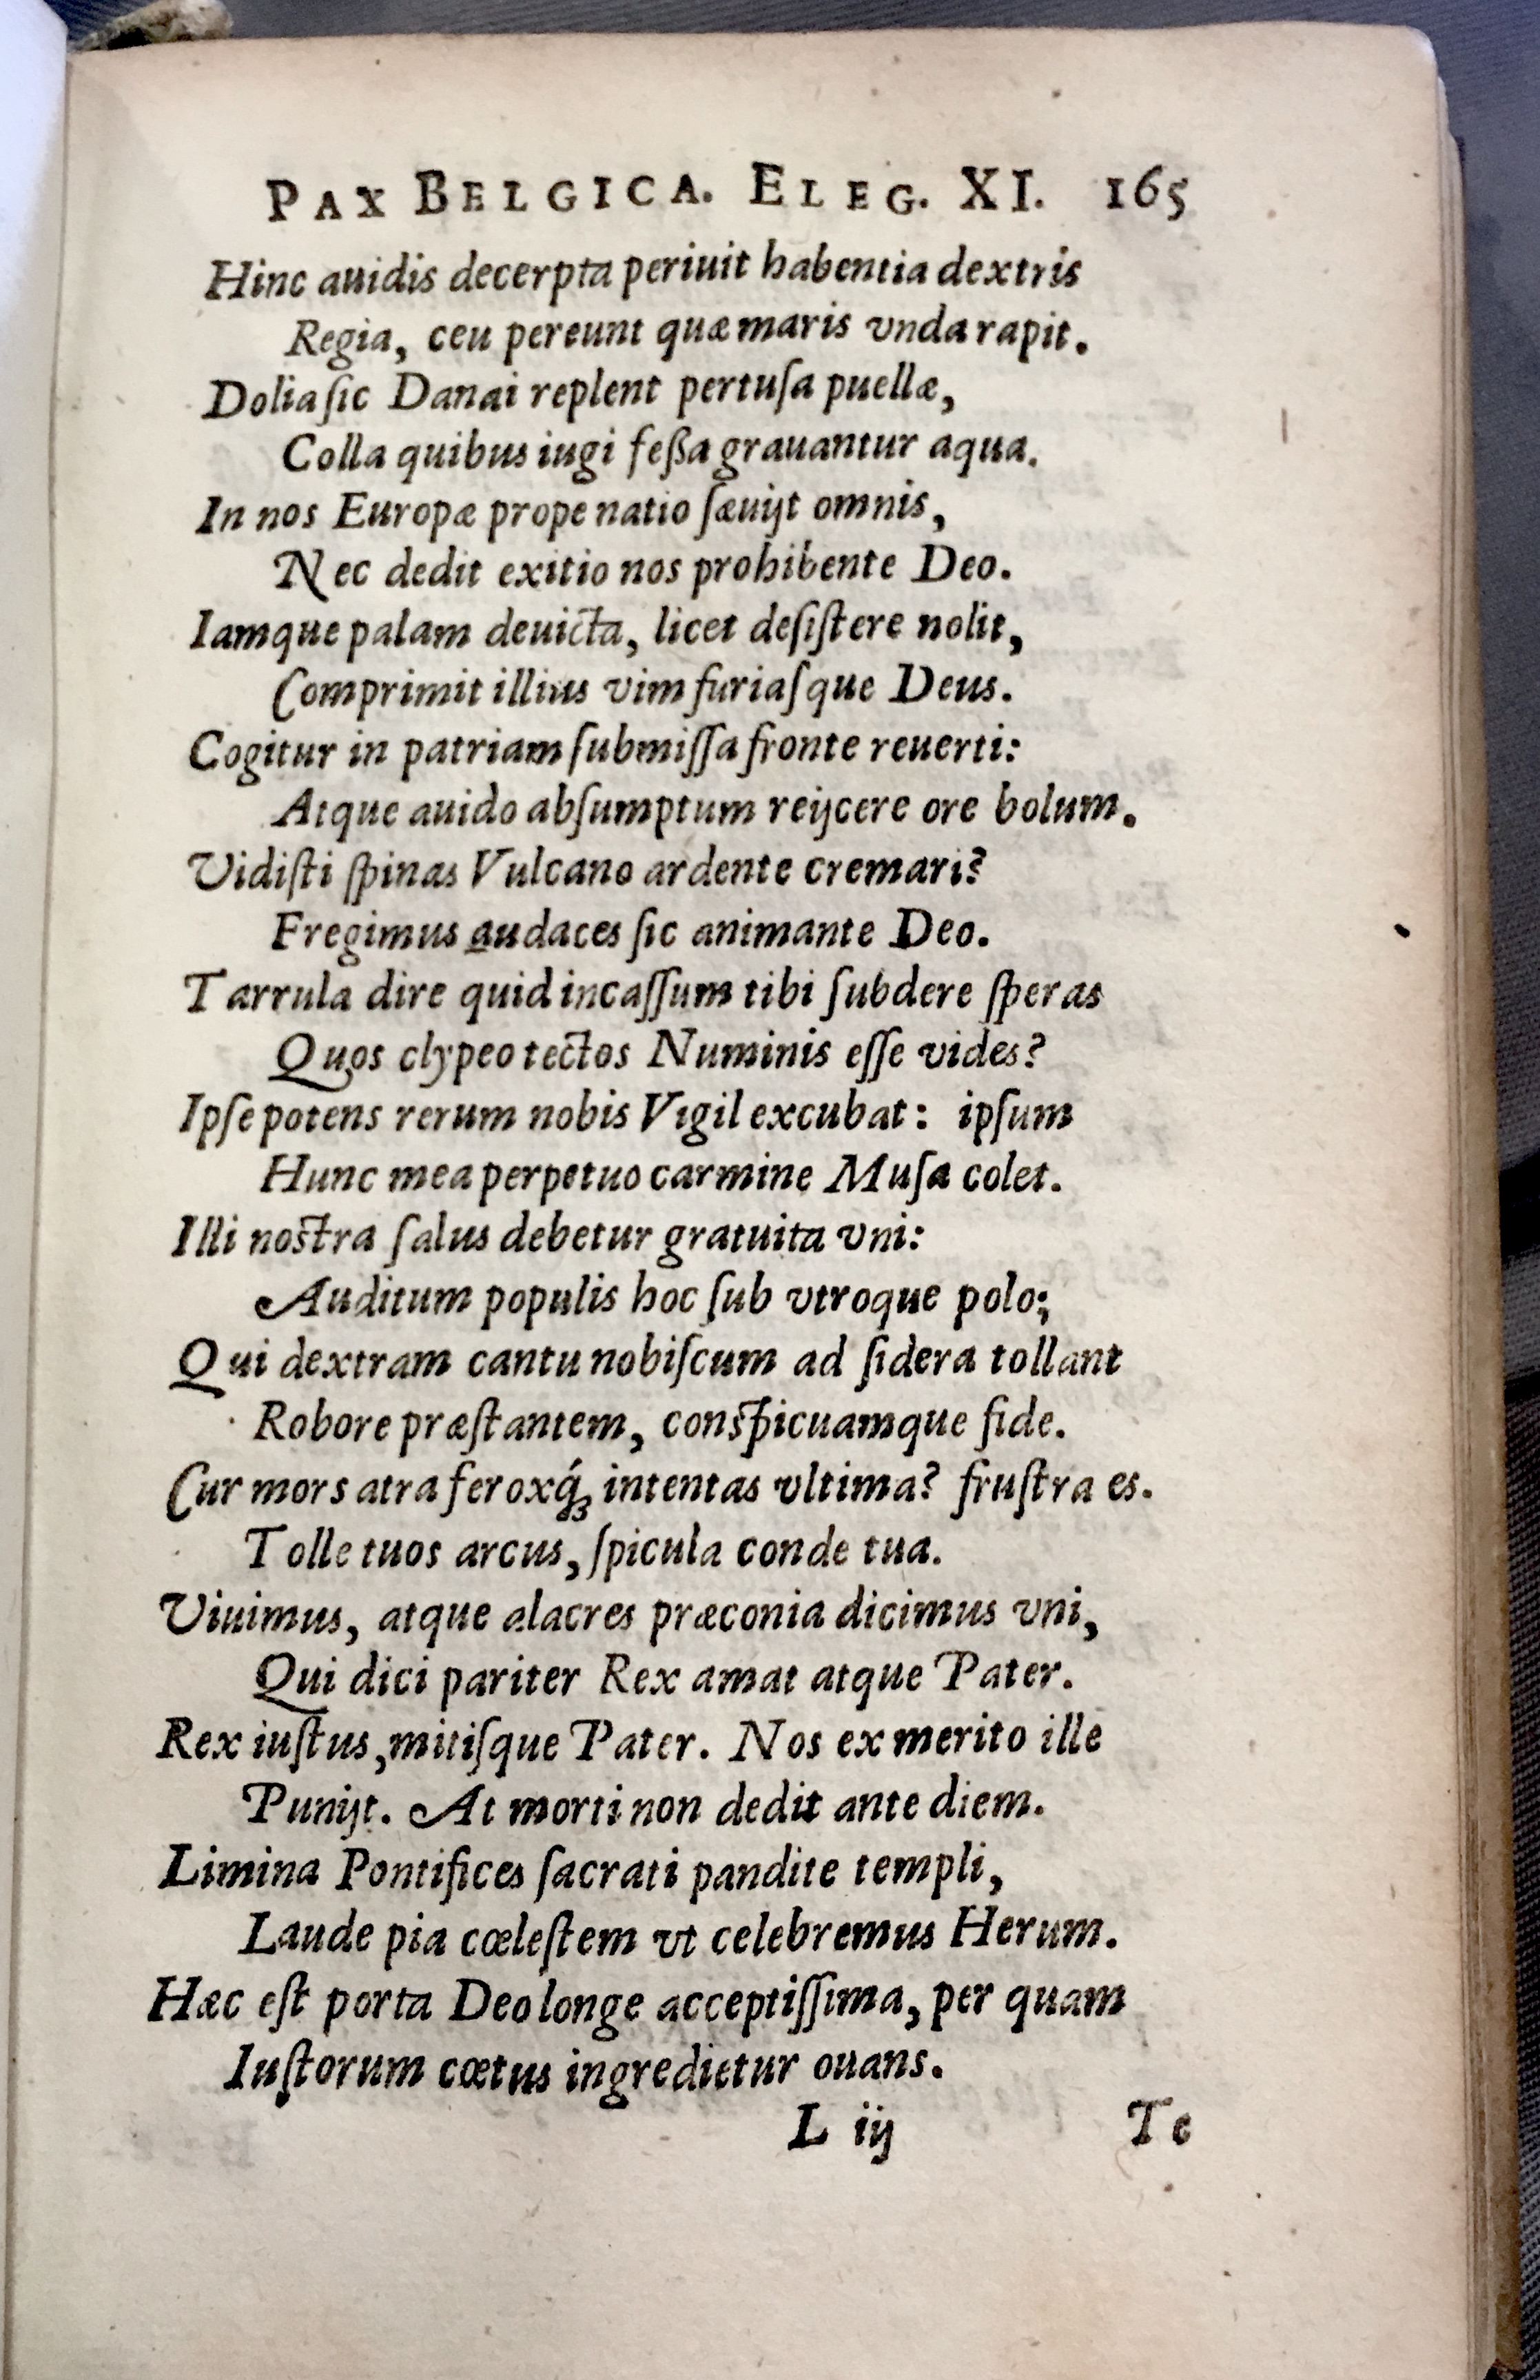 PAX BELGICA. ELEG. XI. 165
Hinc auidis decerpta periuit habentia dextris
Regia, ceu pereunt quæ maris vnda rapit.
Dolia ſic Danai replent pertuſa puellæ,
Colla quibus iugi feßa grauantur aqua.
In nos Europæ prope natio ſæuijt omnis,
Nec dedit exitio nos prohibente Deo.
Iamque palam deuicta, licet deſiſtere nolit,
Comprimit illius vim furiaſque Deus.
Cogitur in patriam ſubmiſſa fronte reuerti:
Atque auido abſumptum reijcere ore bolum.
Vidiſti ſpinas Vulcano ardente cremari?
Fregimus audaces ſic animante Deo.
Tarrula dire quid incaſſum tibi ſubdere ſperas
Quos clypeo tectos Numinis eſſe vides?
Ipſe potens rerum nobis Vigil excubat: ipſum
Hunc mea perpetuo carmine Muſa colet.
Illi nostra ſalus debetur gratuita vni:
Auditum populis hoc ſub vtroque polo;
Qui dextram cantu nobiſcum ad ſidera tollant
Robore præſtantem, conspicuamque fide.
Cur mors atra feroxq́ꝫ intentas vltima? fruſtra es.
Tolle tuos arcus, ſpicula conde tua.
Viuimus, atque alacres præconia dicimus vni,
Qui dici pariter Rex amat atque Pater.
Rex iuſtus, mitiſque Pater. Nos ex merito ille
Punijt. At morti non dedit ante diem.
Limina Pontifices ſacrati pandite templi,
Laude pia cœleſtem vt celebremus Herum.
Hæc eſt porta Deo longe acceptiſſima, per quam
Iuſtorum cœtus ingredietur ouans.
L iij Te